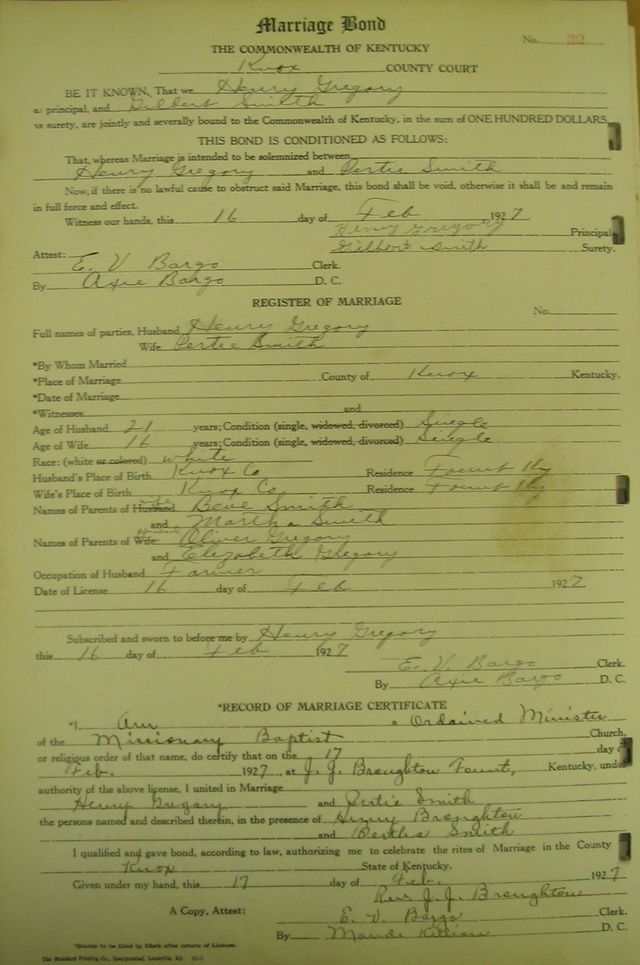 Marriage Bond
No.
THE COMMONWEALTH OF KENTUCKY
Knox COUNTY COURT
BE IT KNOWN, That we Henry Gregory
as principal, and Gilbert Smith
as surety, are jointly and severally bound to the Commonwealth of Kentucky, in the sum of ONE HUNDRED DOLLARS.
THIS BOND IS CONDITIONED AS FOLLOWS:
That, whereas Marriage is intended to be solemnized between
Henry Gregory and Pertie Smith
Now, if there is no lawful cause to obstruct said Marriage, this bond shall be void, otherwise it shall be and remain
in full force and effect.
Witness our hands, this 16 day of Feb 1927
Henry Gregory Principal
Gilbert Smith Surety.
Attest:
E. V Bargo Clerk.
By Axie Bargo D. C.
REGISTER OF MARRIAGE
No.
Full names of parties, Husband Henry Gregory
Wife Pertie Smith
*By Whom Married
*Place of Marriage County of Knox Kentucky.
*Date of Marriage
*Witnesses and
Age of Husband 21 years; Condition (single, widowed, divorced) Single
Age of Wife 16 years; Condition (single, widowed, divorced) Single
Race: (white or colored) white
Husband's Place of Birth Knox Co Residence Fount Ky
Wife's Place of Birth Knox Co Residence Fount Ky
Names of Parents of Husband Beve Smith
and Martha Smith
Names of Parents of Wife Oliver Gregory
and Elizabeth Gregory
Occupation of Husband Farmer
Date of License 16 day of Feb 1927
Subscribed and sworn to before me by Henry Gregory
this 16 day of Feb 1927
E. V. Bargo Clerk.
By Axie Bargo D. C.
*RECORD OF MARRIAGE CERTIFICATE
*I, am a Ordained Minister
of the Missionary Baptist Church,
or religious order of that name, do certify that on the 17 day of
Feb. 1927, at J. J. Broughton Fount, Kentucky, under
authority of the above license, I united in Marriage
Henry Gregory and Pertie Smith
the persons named and described therein, in the presence of Broughton
and Bertha Smith
I qualified and gave bond, according to law, authorizing me to celebrate the rites of Marriage in the County
Knox State of Kentucky.
Given under my hand, this 17 day of Feb. 1927
Rev J. J. Broughton
A Copy, Attest: E. V. Bargo Clerk.
By Maude D. C.
*Blanks to be filled by Clerk after return of License.
The Standard Printing Co., Incorporated, Louisville, Ky.